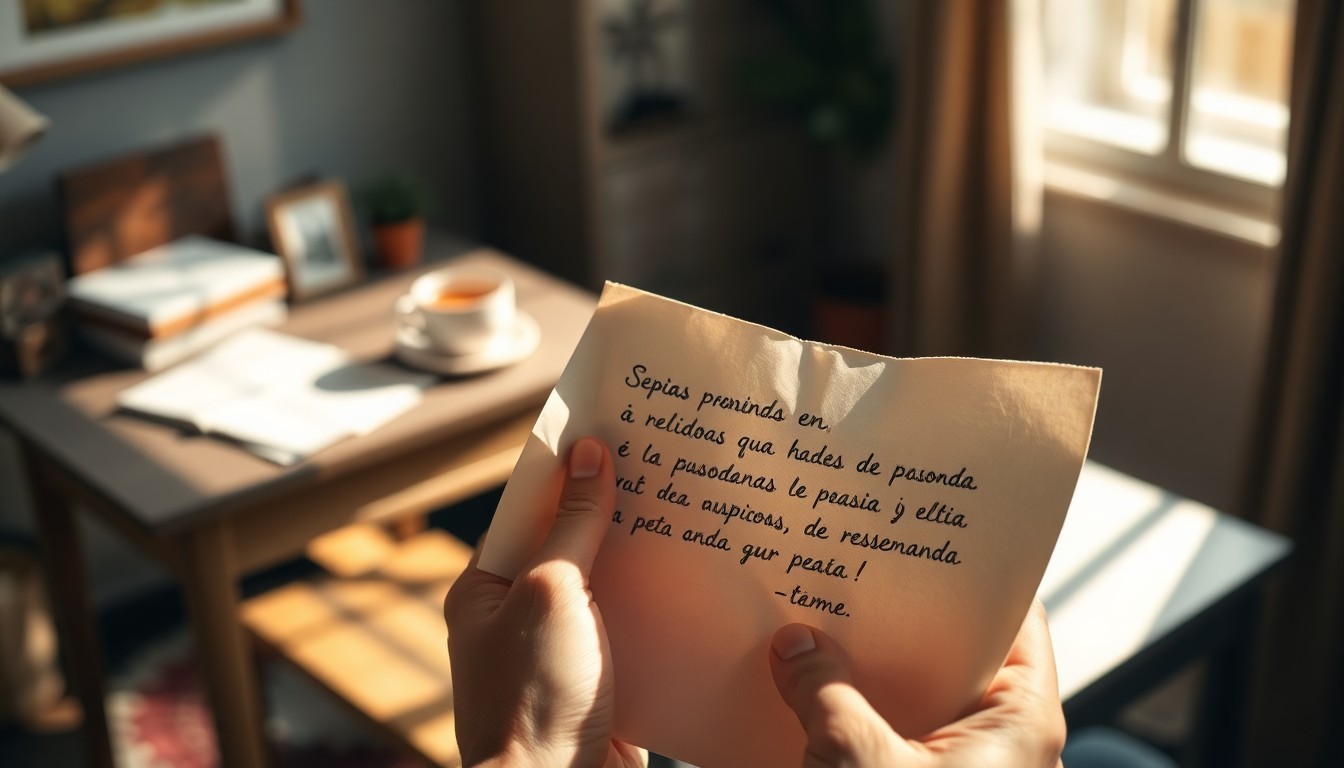 Sepias preninds en,
à relidoas qua hades de pasonda
é la pusodanas le peasia ÿ eltia
vat dea auspicoas, de ressemanda
a peta anda gur peata!
-tarme.